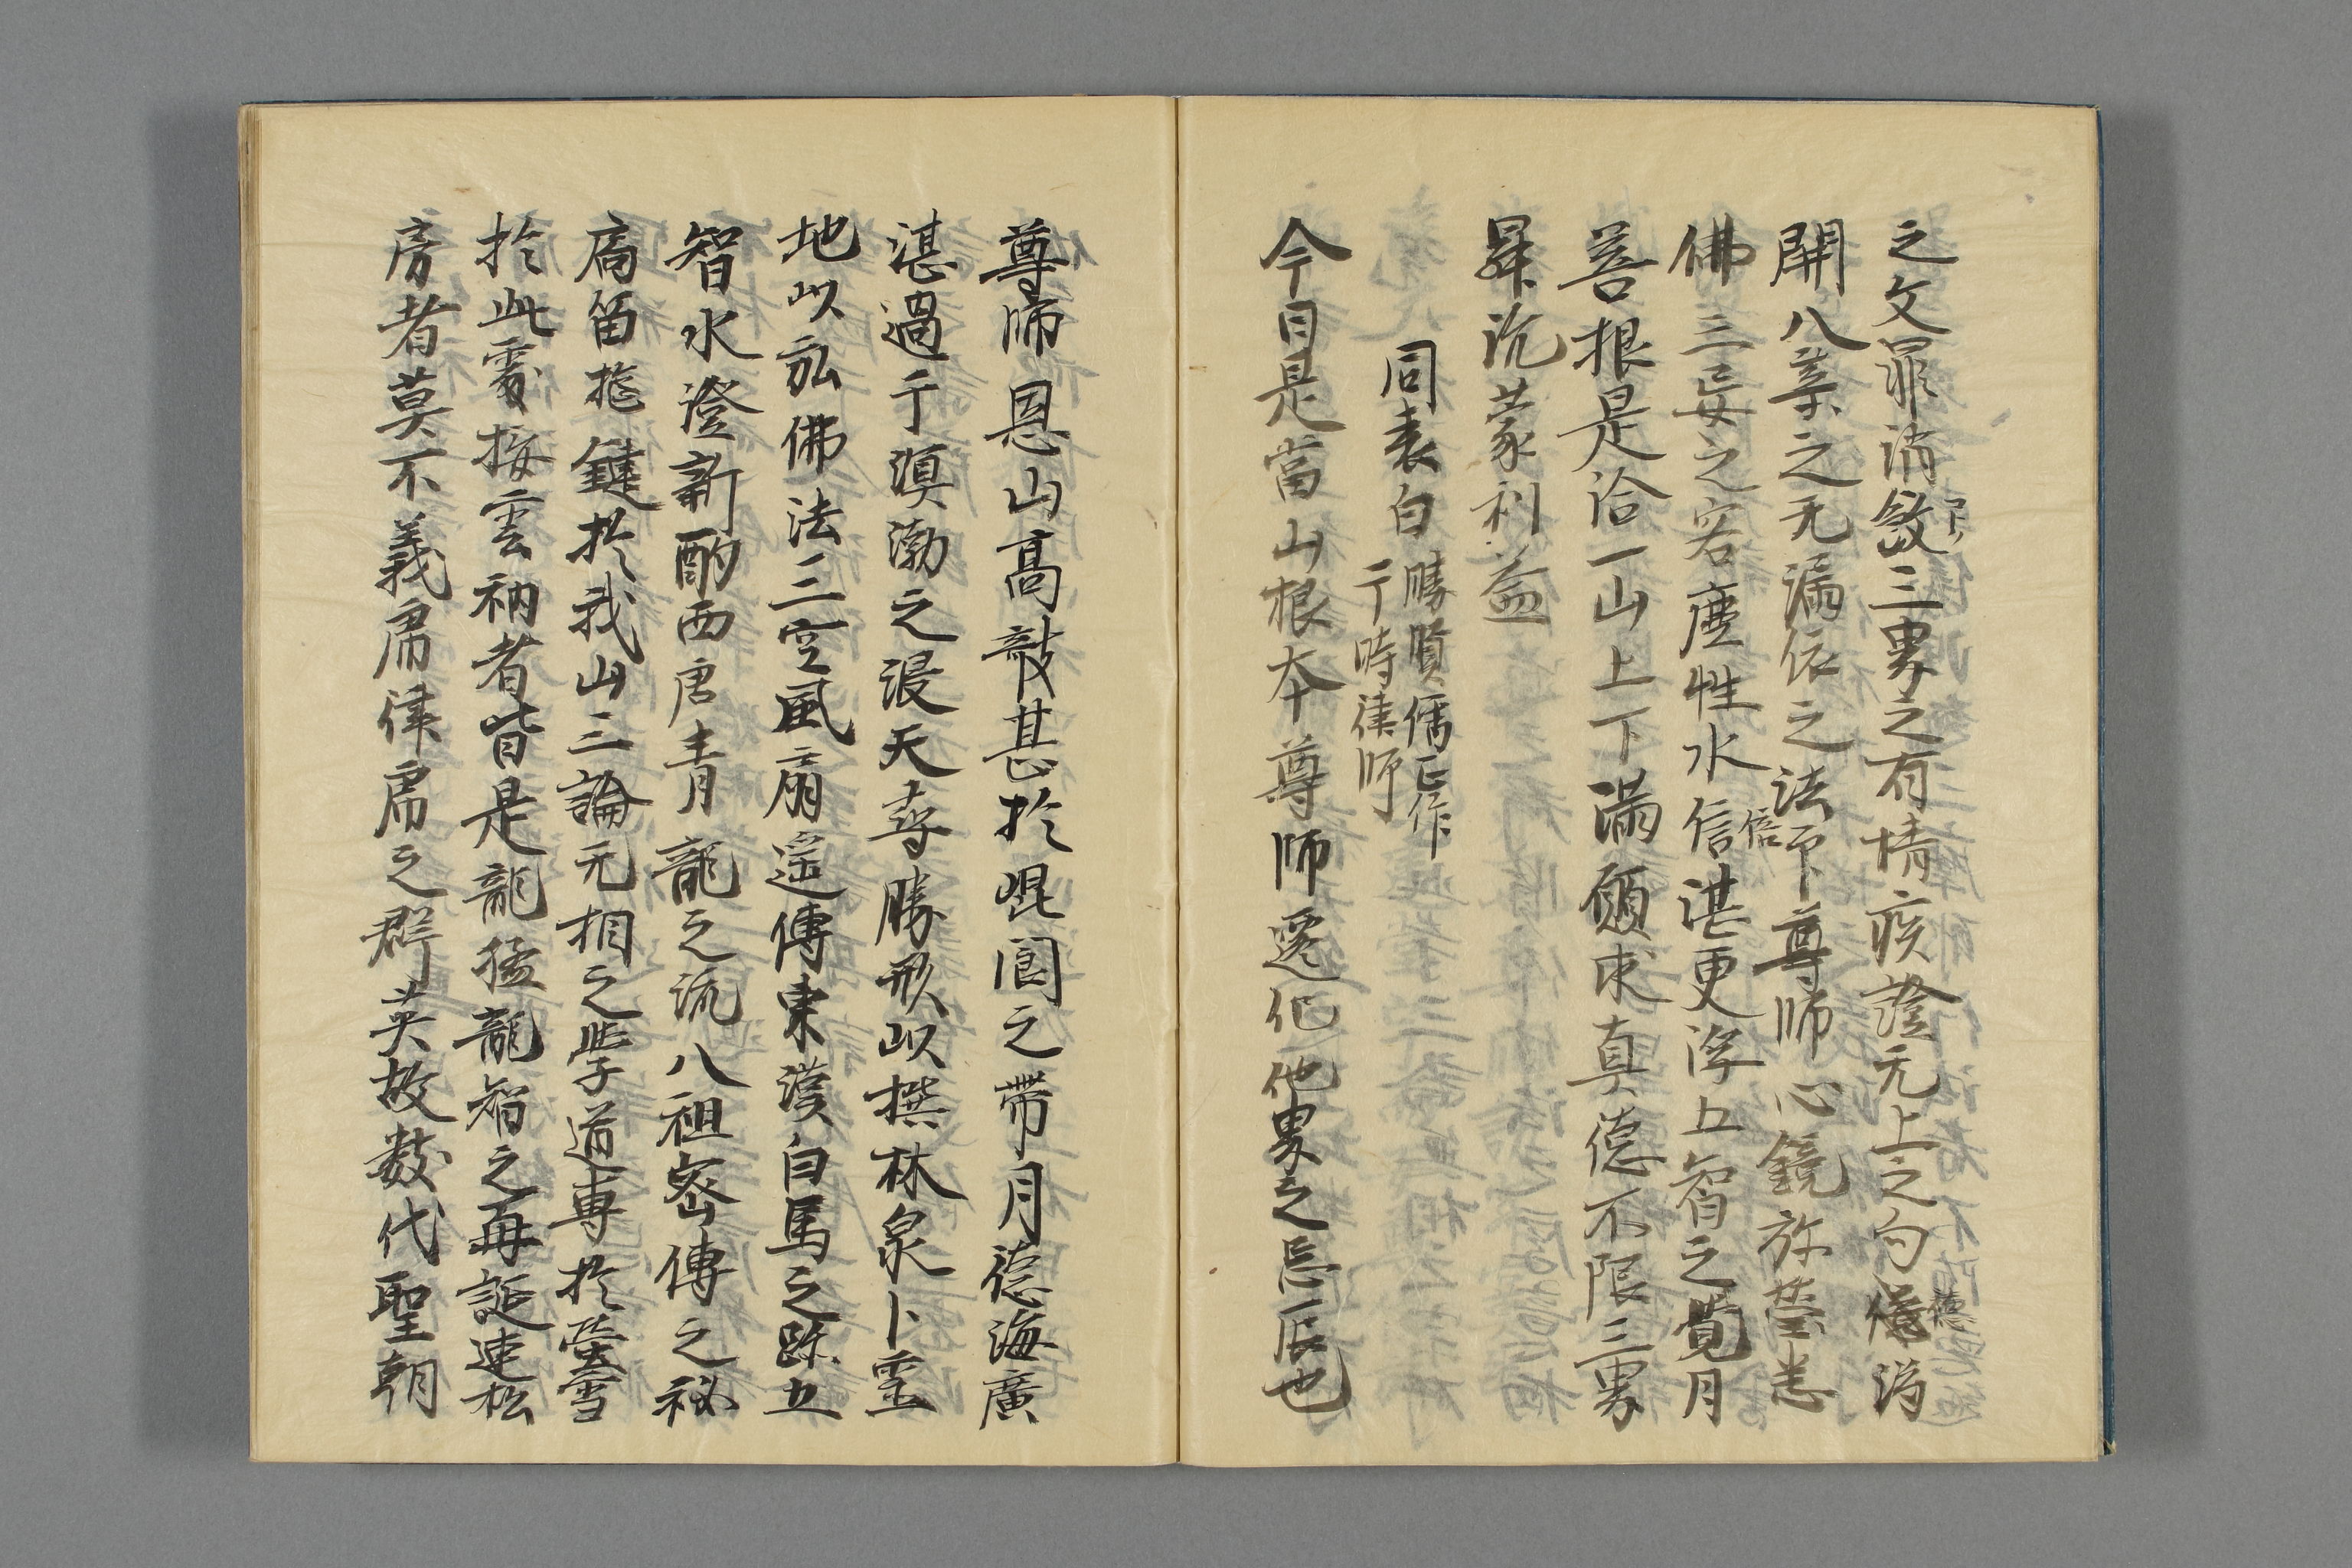 之文罪消欲三界之有情疾證无上之句偈浴
德
開八葉之无漏依之法印尊師心鏡弥瑩悉
佛三妄之客塵性水信湛更浮五智之覺月
倍
菩根是洽一山上下滿願求真德不限三界
昇沉蒙利益
同表白 勝賢僧正作
于時律師
今日是當山根本尊師遷化他界之忌辰也
尊師恩山高敲甚於崐閬之帶月德海廣
湛過于溟渤之浸天尋勝形以撰林泉卜靈
地以弘佛法三空風扇遥傳東漢白馬之跡五
智水澄新酌西唐青龍之流八祖密傳之祕
扃啚施鍵於我山三論无相之學道專於螢雪
於此處接雲衲者皆是龍猛龍智之再誕連松
房者莫不義席律席之群英故数代聖朝